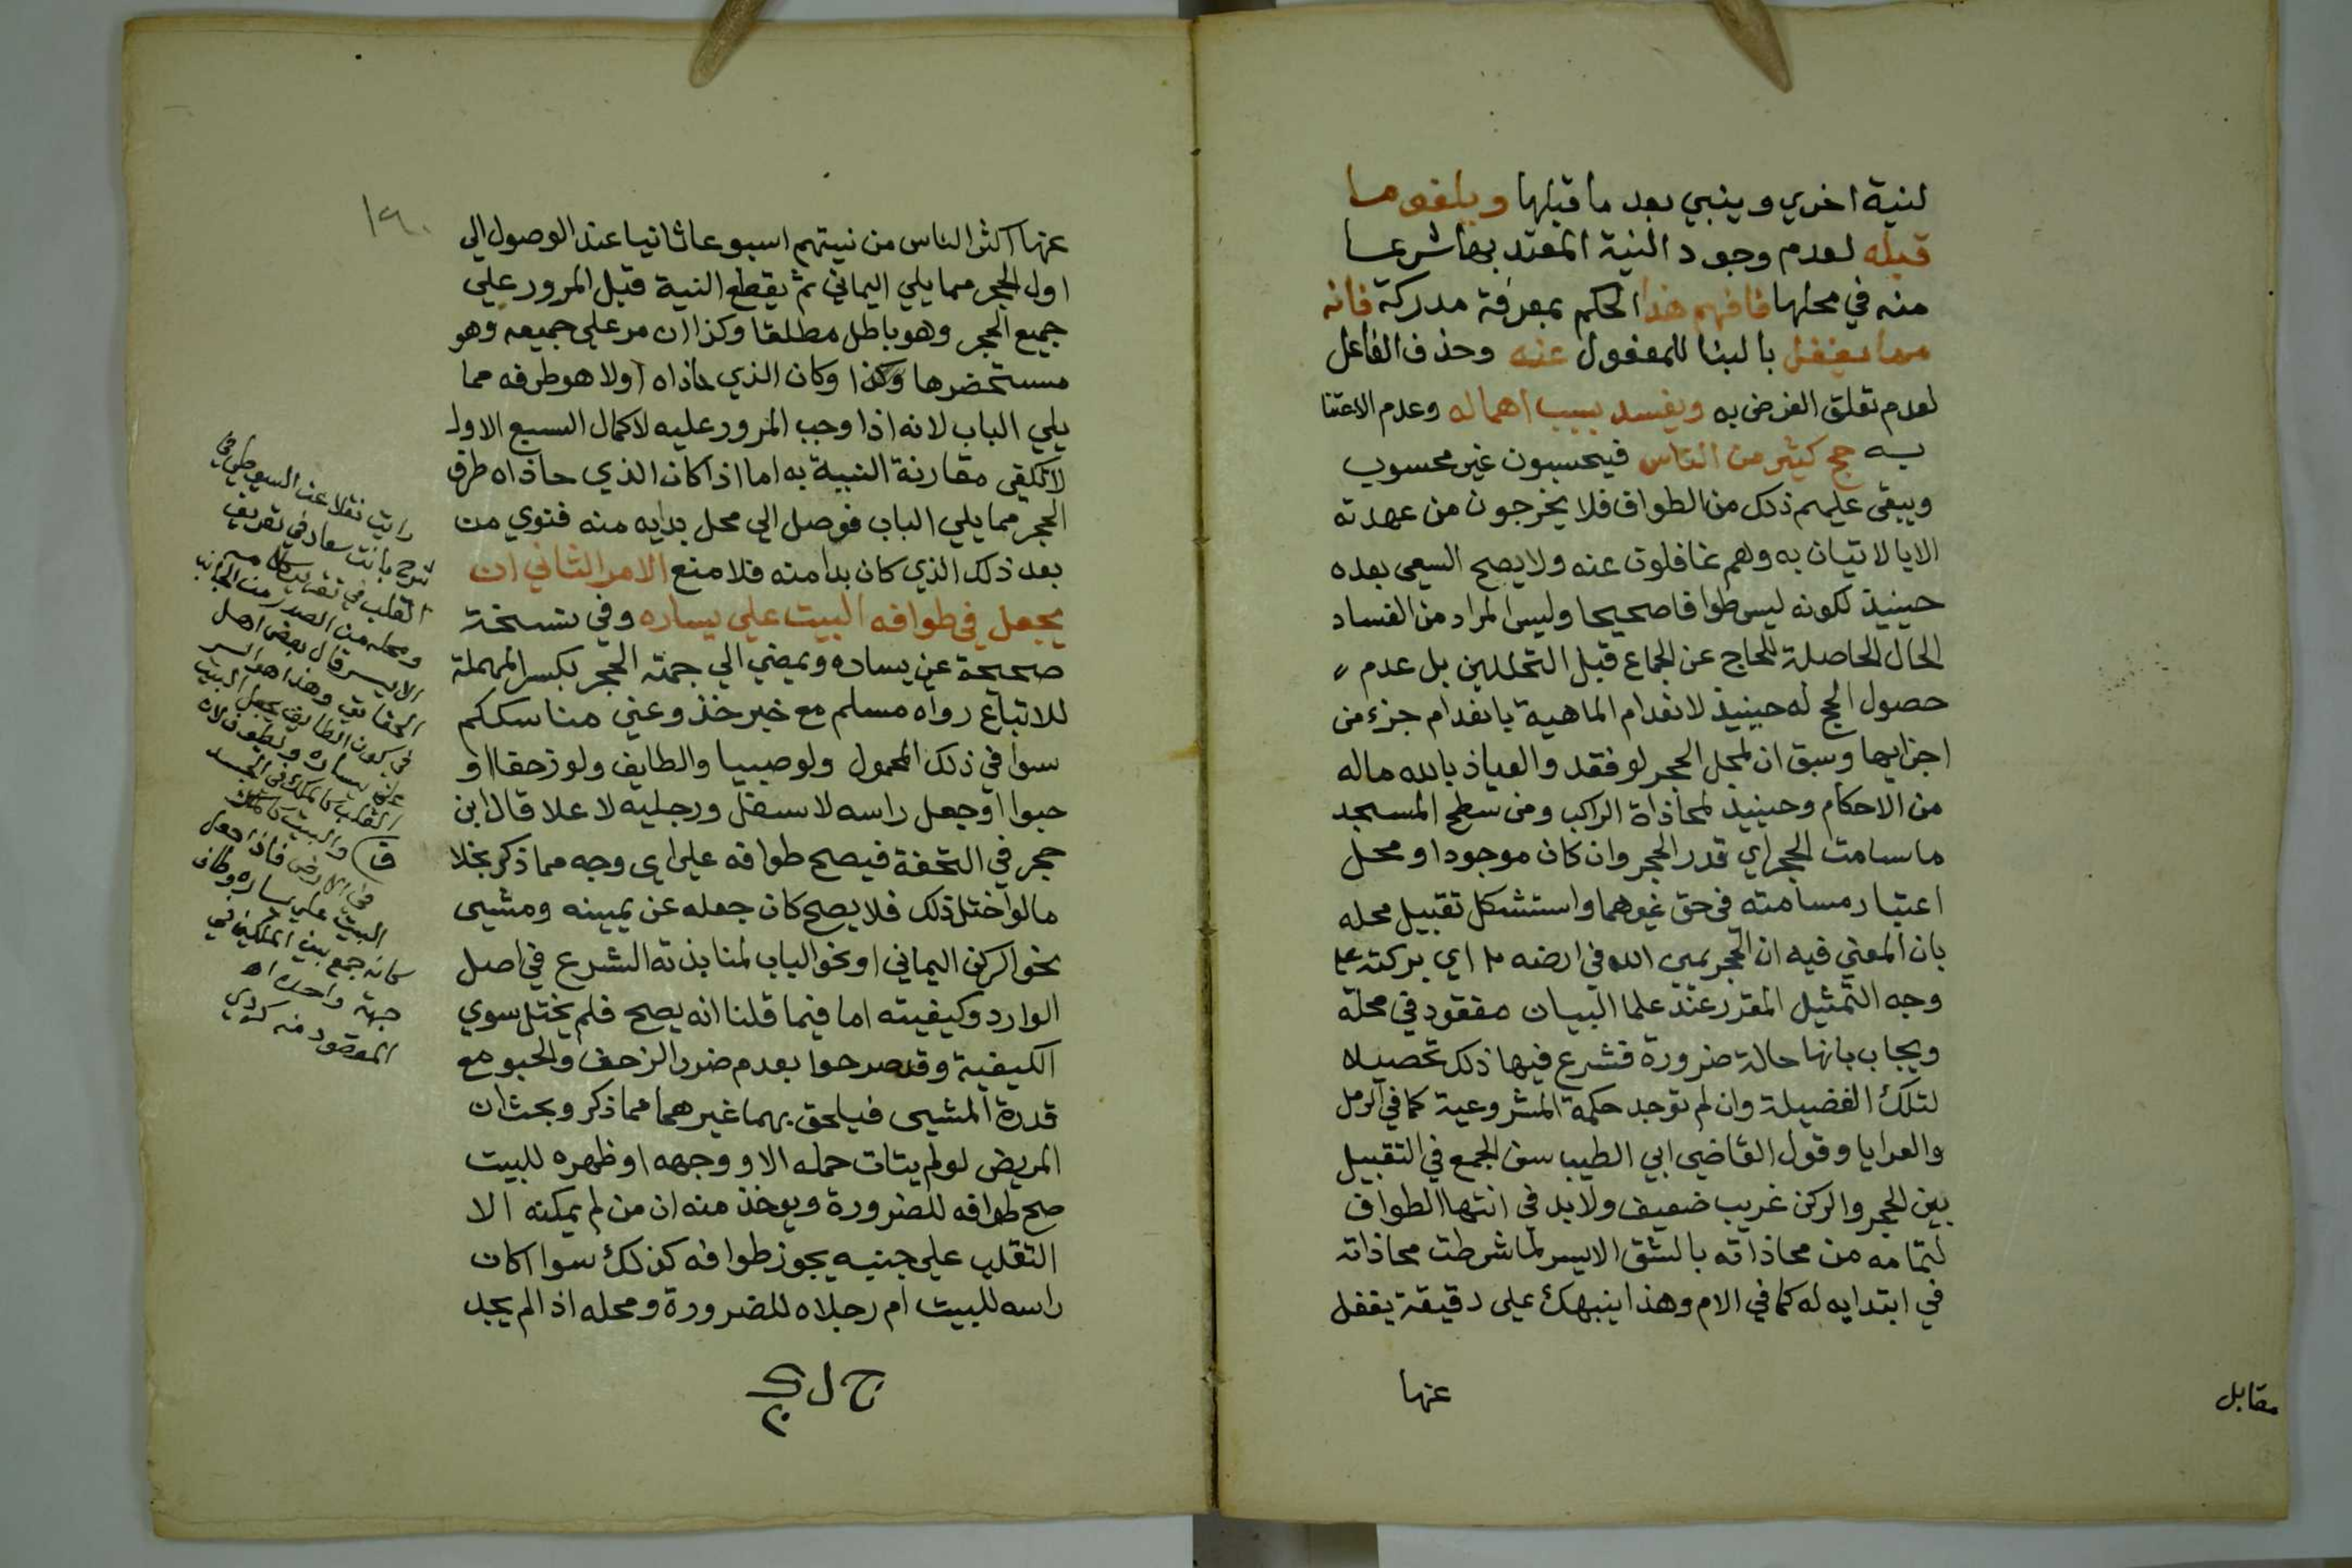 لنية اخري وينبي بعد ما قبلها ويلغو ما
قبله لعدم وجود النية المعتد بها شرعا
منه في محلها فافهم هذا الحكم بمعرفة مدركه فانه
مما يغفل بالبنا للمفعول عنه وحذف الفاعل
لعدم تعلق الغرض به ويفسد بسبب اهماله وعدم الاعتنا
به حج كثير من الناس فيحسبون غير محسوب
ويبقى عليهم ذلك من الطواف فلا يخرجون من عهدته
الا بالاتيان به وهم غافلون عنه ولا يصح السعى بعده
حينيذ لكونه ليس طوافا صحيحا وليس المراد من الفساد
الحال الحاصلة للحاج عن الجماع قبل التحللين بل عدم
حصول الحج له حينيذ لانعدام الماهية بانعدام جزء من
اجزايها وسبق ان لمحل الحجر لو فقد والعياذ بالله ماله
من الاحكام وحينيذ لمحاذاة الراكب ومن سطح المسجد
ما سامت الحجر اي قدر الحجر وان كان موجودا ومحل
اعتبار مسامته في حق غيرهما واستشكل تقبيل محله
بان المعني فيه ان الحجر يمين الله في ارضه اي بركته علي
وجه التمثيل المقرر عند علما البيان مفقود في محله
ويجاب بانها حالة ضرورة فشرع فيها ذلك تحصيلا
لتلك الفضيلة وان لم توجد حكمة المشروعية كما في الرمل
والعرايا وقول القاضي ابي الطيب سن الجمع في التقبيل
بين الحجر والركن غريب ضعيف ولا بد في انتها الطواف
لتمامه من محاذاته بالشق الايسر لما شرطت محاذاته
في ابتدايه له كما في الام وهذا ينبهك على دقيقة يغفل
عنها
مقابل
١٩٠
عنها اكثر الناس من نيتهم اسبوعا ثانيا عند الوصول الي
اول الحجر مما يلي اليماني ثم يقطع النية قبل المرور علي
جميع الحجر وهو باطل مطلقا وكذا ان مر علي جميعه وهو
مستحضرها وكان الذي حاذاه اولا هو طرفه مما
يلي الباب لانه اذا وجب المرور عليه لاكمال السبع الاول
لا تكفي مقارنة النية به اما اذا كان الذي حاذاه طرف
الحجر مما يلي الباب فوصل الي محل بدايه منه فنوي من
بعد ذلك الذي كان بدا منه فلا منع الامر الثاني ان
يجعل في طوافه البيت علي يساره وفي نسخة
صحيحة عن يساره ويمضي الي جهة الحجر بكسر المهملة
للاتباع رواه مسلم مع خبر خذوا عني مناسككم
سوا في ذلك المحمول ولو صبيا والطايف ولو زحفا او
حبوا او جعل راسه لاسفل ورجليه لاعلا قال ابن
حجر في التحفة فيصح طوافه علي اي وجه مما ذكر بخلا
ما لو اختل ذلك فلا يصح كان جعله عن يمينه ومشى
نحو الركن اليماني او نحو الباب لمنابذته الشرع في اصل
الوارد وكيفيته اما فيما قلنا انه يصح فلم يختل سوي
الكيفية وقد صرحوا بعدم ضرر الزحف والحبو مع
قدرة المشي فيلحق بهما غيرهما مما ذكر وبحث ان
المريض لو لم يتات حمله الا ووجهه او ظهره للبيت
صح طوافه للضرورة ويوخذ منه ان من لم يمكنه الا
التقلب علي جنبيه يجوز طوافه كذلك سوا اكان
راسه للبيت ام رجلاه للضرورة ومحله اذا لم يجد
رايت نقلا عن السيوطي في
شرح بانت سعاد في تعريف
القلب
ومحله من الصدر من الجانب
الايسر قال بعض اهل
الحقايق وهذا هو السر
في كون الطايف يجعل البيت
عن يساره ويطوف لان
القلب كالملك في الجسد
والبيت كالملك
في الارض فاذا جعل
البيت علي يساره وطاف
كانه جمع بين الملكين في
جهة واحدة اه
المقصود منه كردي